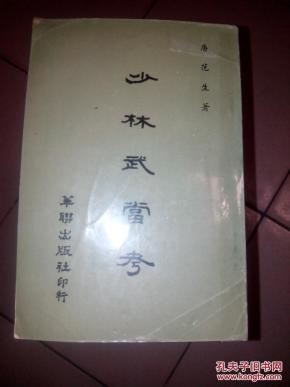 唐范生著
少林武當考
華聯出版社印行
孔夫子旧书网